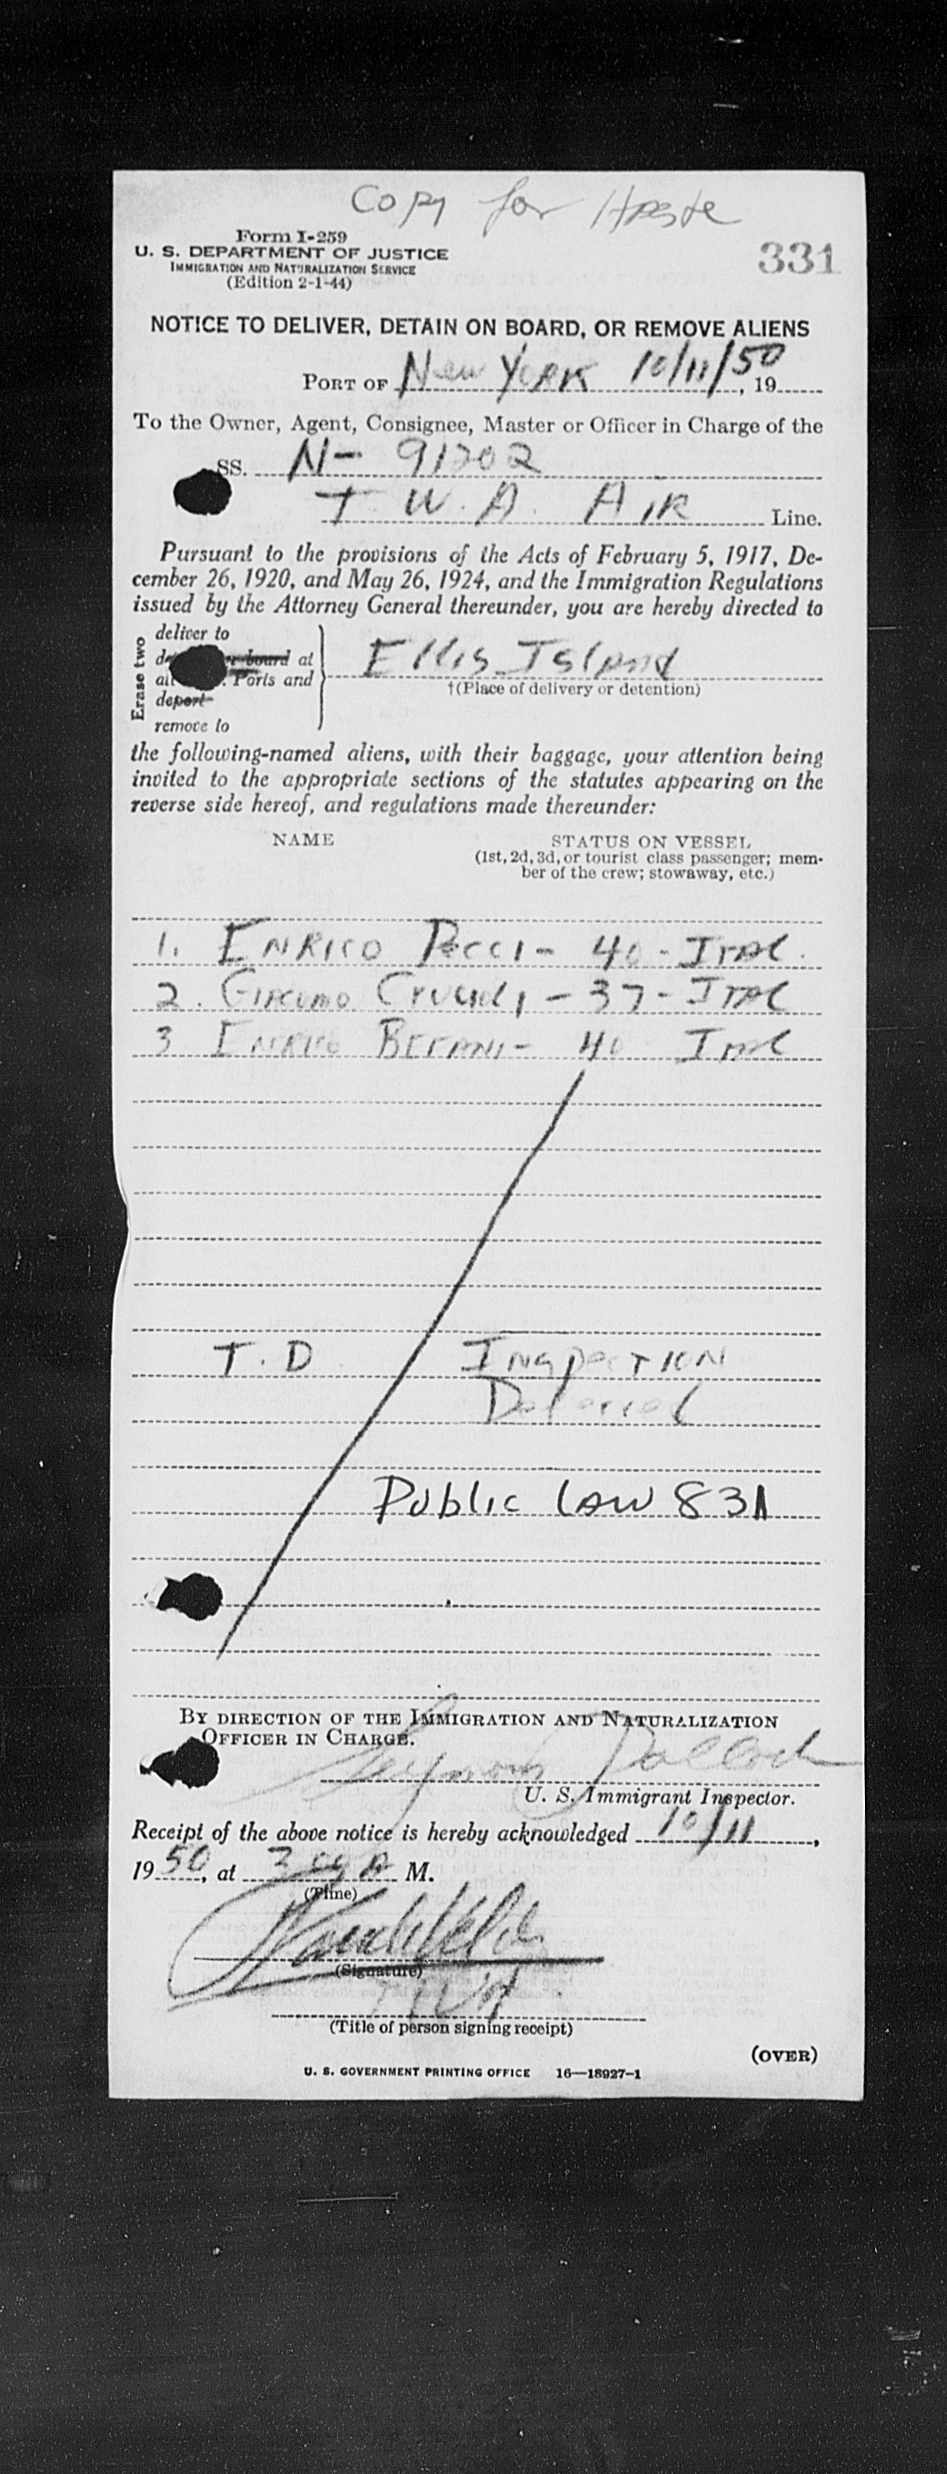 Copy for Haste
Form I-259
U. S. DEPARTMENT OF JUSTICE
IMMIGRATION AND NATURALIZATION SERVICE
(Edition 2-1-44)
331
NOTICE TO DELIVER, DETAIN ON BOARD, OR REMOVE ALIENS
PORT OF New York 10/11/50, 19
To the Owner, Agent, Consignee, Master or Officer in Charge of the
SS. N- 91202
T. W. A. Air Line.
Pursuant to the provisions of the Acts of February 5, 1917, De-
cember 26, 1920, and May 26, 1924, and the Immigration Regulations
issued by the Attorney General thereunder, you are hereby directed to
Erase two
deliver to
board at
Ports and
deport
remove to
Ellis Island
†(Place of delivery or detention)
the following-named aliens, with their baggage, your attention being
invited to the appropriate sections of the statutes appearing on the
reverse side hereof, and regulations made thereunder:
NAME STATUS ON VESSEL
(1st, 2d, 3d, or tourist class passenger; mem-
ber of the crew; stowaway, etc.)
1. Enrico Pecci - 40 - Ital.
2. Giacomo - 37 - Ital
3 Enrico - 40 Ital
T. D. Inspection
Deferred
Public Law 831
BY DIRECTION OF THE IMMIGRATION AND NATURALIZATION
OFFICER IN CHARGE.
Seymour Pollock
U. S. Immigrant Inspector.
Receipt of the above notice is hereby acknowledged 10/11,
1950, at 3 A M.
(Time)
(Signature)
TWA
(Title of person signing receipt)
(OVER)
U. S. GOVERNMENT PRINTING OFFICE 16—18927-1